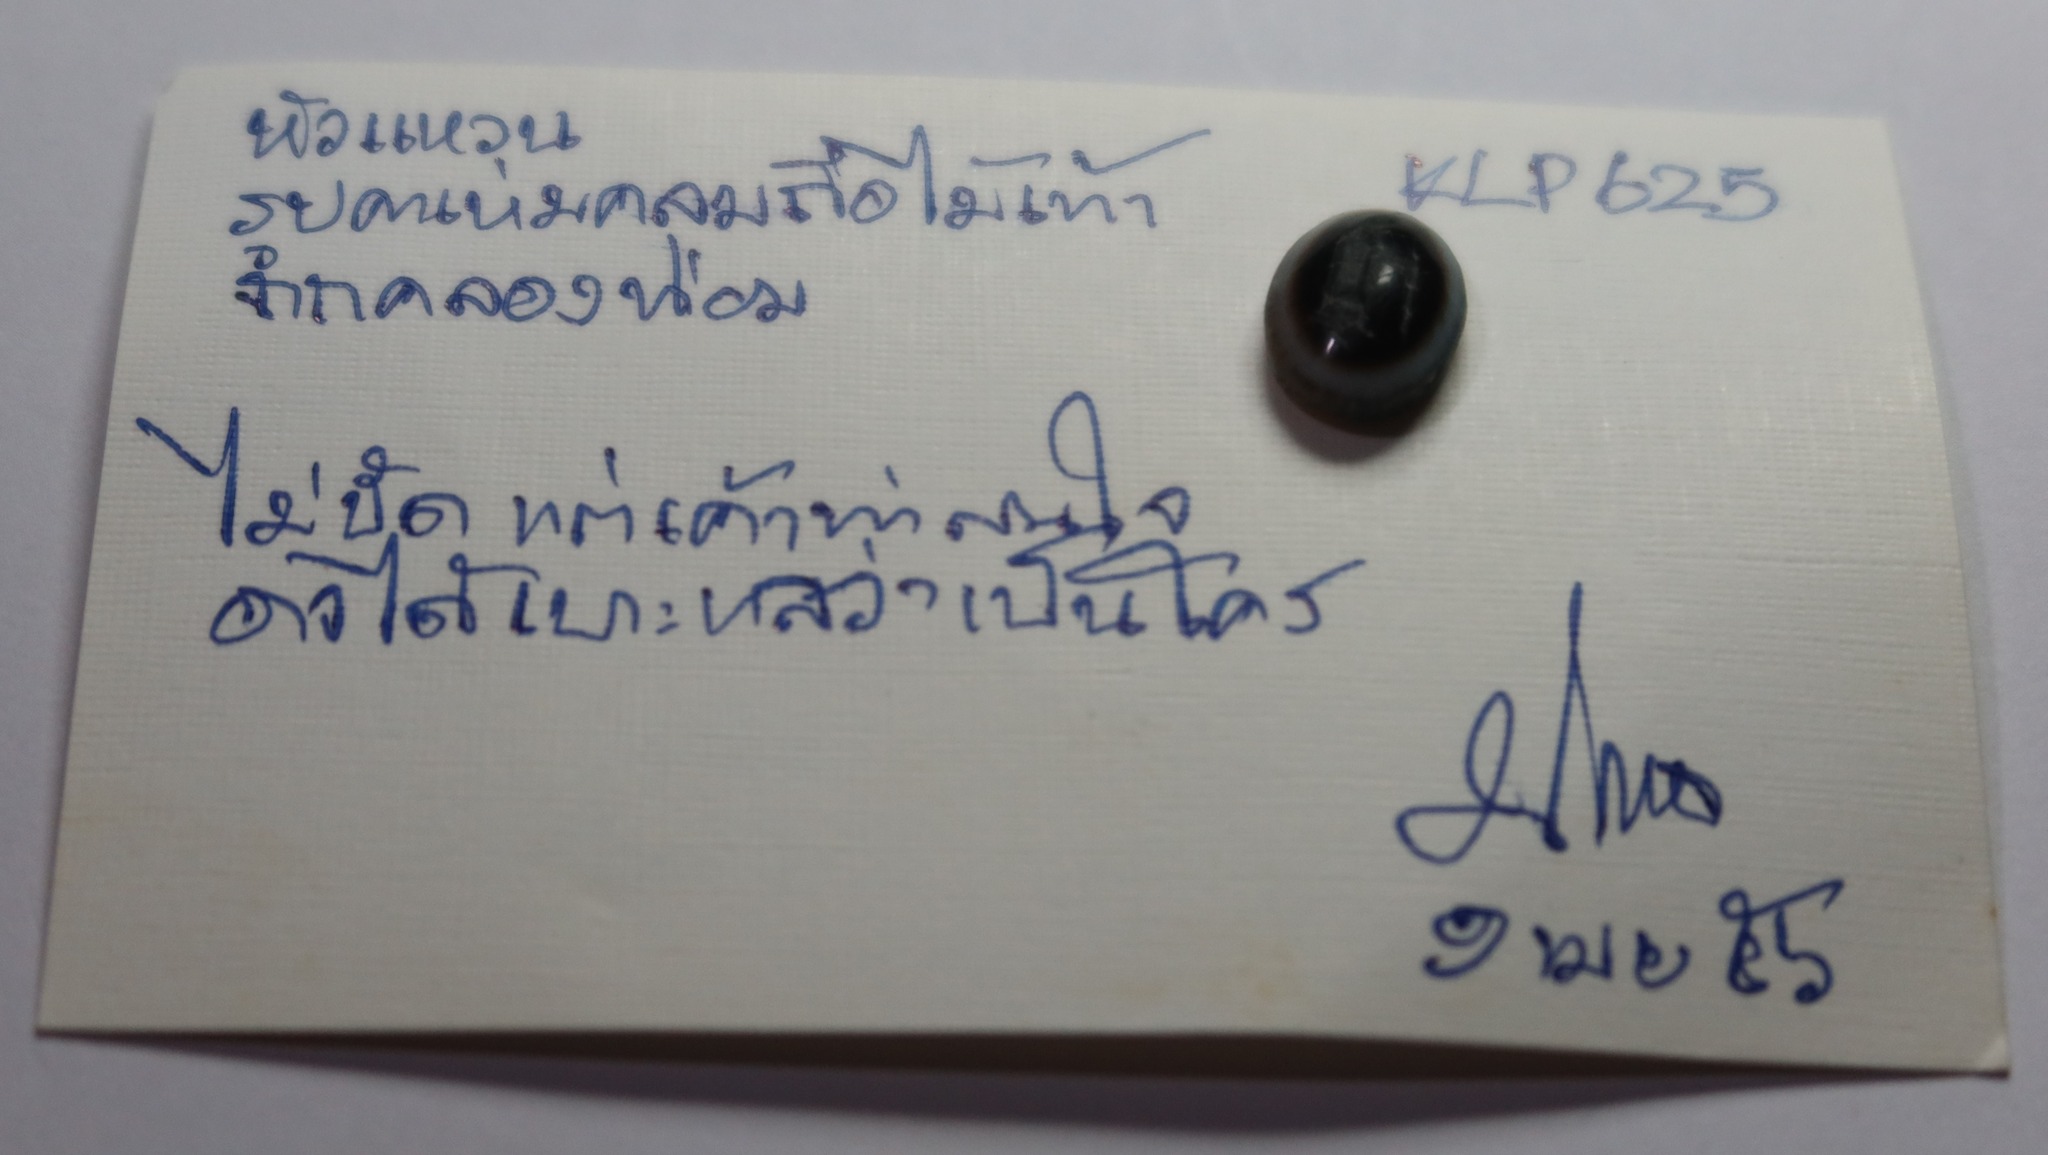 หัวแหวน
KLP 625
รูปคนห่มคลุมถือไม้เท้า
จากคลองท่อม
ไม่ชัด แต่เค้าท่าสนใจ
อาจได้เบาะแสว่าเป็นใคร
๑ เมย ๕๖